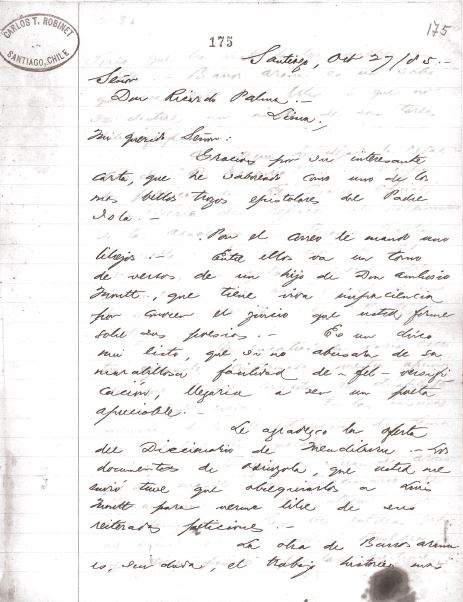 CARLOS T. ROBINET
SANTIAGO, CHILE
175
175
Santiago, Oct 27/85.-
Señor
Don Ricardo Palma.-
Lima.,
Mi querido Señor:
Gracias por su interesante
carta, que he saboreado como uno de los
mas bellos trozos epistolares del Padre
Isla.-
Por el correo le mando unos
librejos.- Entre ellos va un tomo
de versos de un hijo de Don Ambrosio
Montt., que tiene viva impaciencia
por conocer el juicio que usted forme
sobre sus poesias.- Es un chico
mui listo, que si no abusara de su
marabillosa facilidad de versifi
cación, llegaria a ser un poeta
apreciable.-
Le agradezco la oferta
del Diccionario de Mendiburu.- Los
documentos de Odriozola, que usted me
envió tuve que obsequiarlos a Luis
Montt para verme libre de sus
reiteradas peticiones.-
La obra de Barros Arana
es, sin duda, el trabajo histórico mas